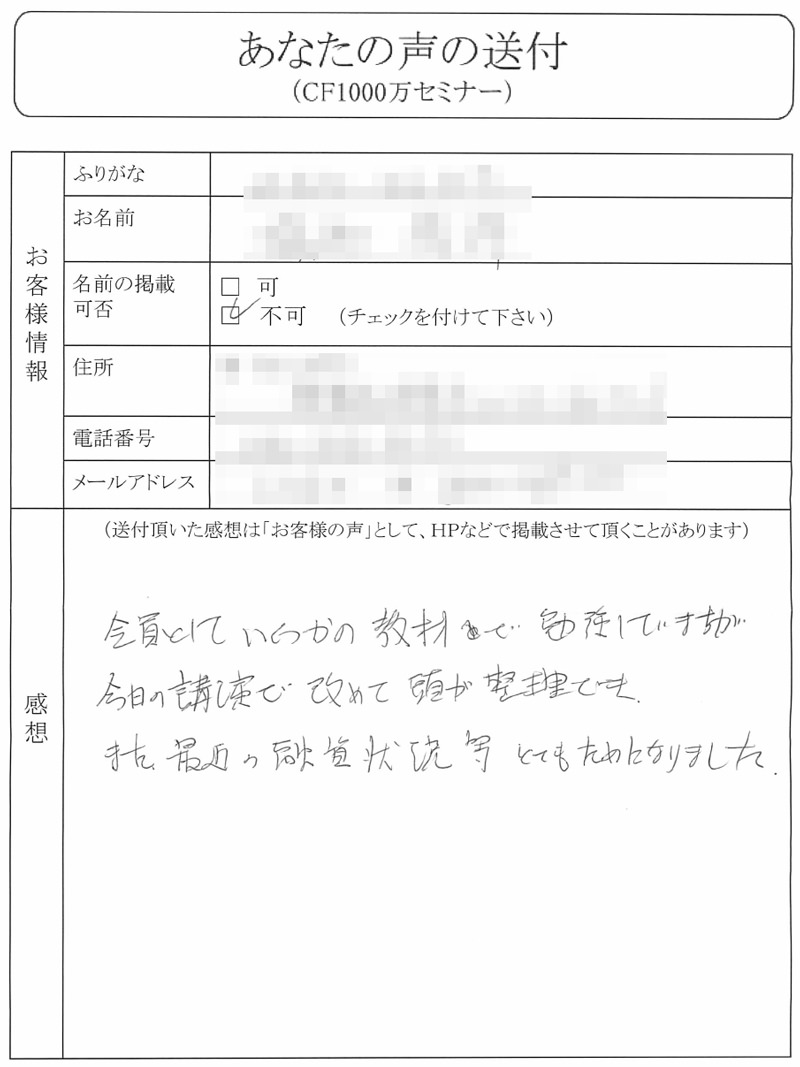 あなたの声の送付
（CF1000万セミナー）
お客様情報
ふりがな
お名前
名前の掲載可否
□ 可
☑ 不可 （チェックを付けて下さい）
住所
電話番号
メールアドレス
感想
（送付頂いた感想は「お客様の声」として、HPなどで掲載させて頂くことがあります）
会員としていくつかの教材で勉強していますが
今日の講演で改めて頭が整理でき、
また、最近の融資状況等とてもためになりました。